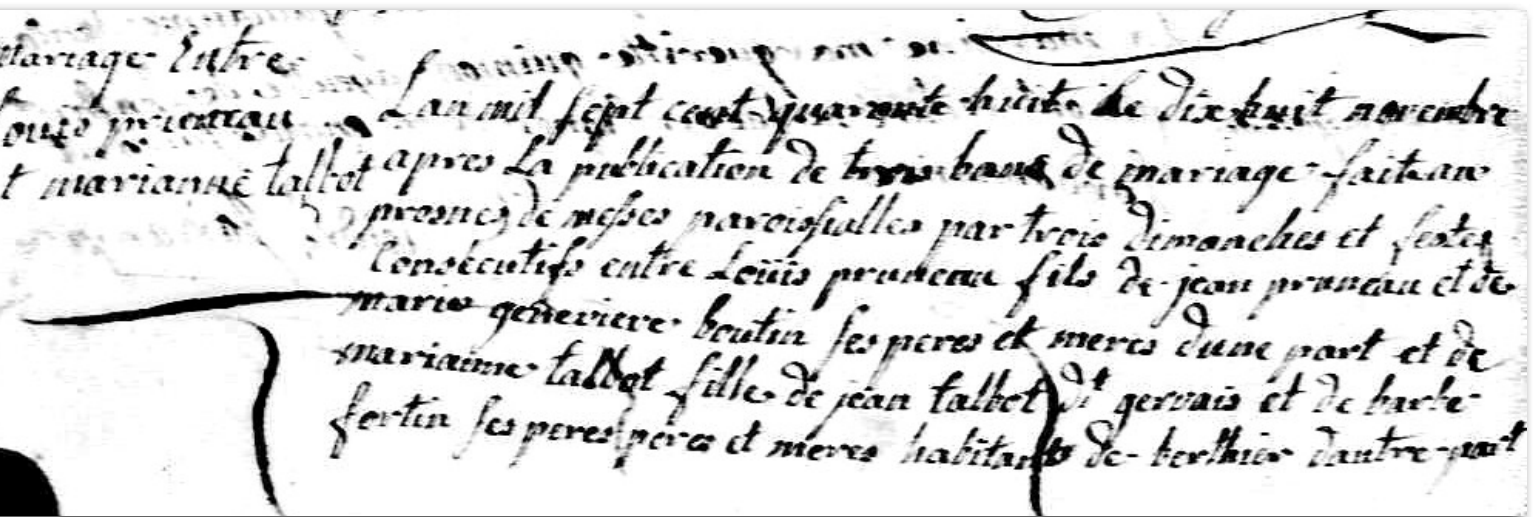 mariage Entre
Louis pruneau
et marianne talbot
Lan mil sept cent quarante huit le dix huit novembre
apres La publication de trois bans de mariage fait au
prosnes de messes paroissialles par trois dimanches et festes
Consecutifs entre Loüis pruneau fils de jean pruneau et de
marie genevieve boutin ses peres et meres dune part et de
marianne talbot fille de jean talbot dt gervais et de barbe
fortin ses peres peres et meres habitants de berthier dautre part